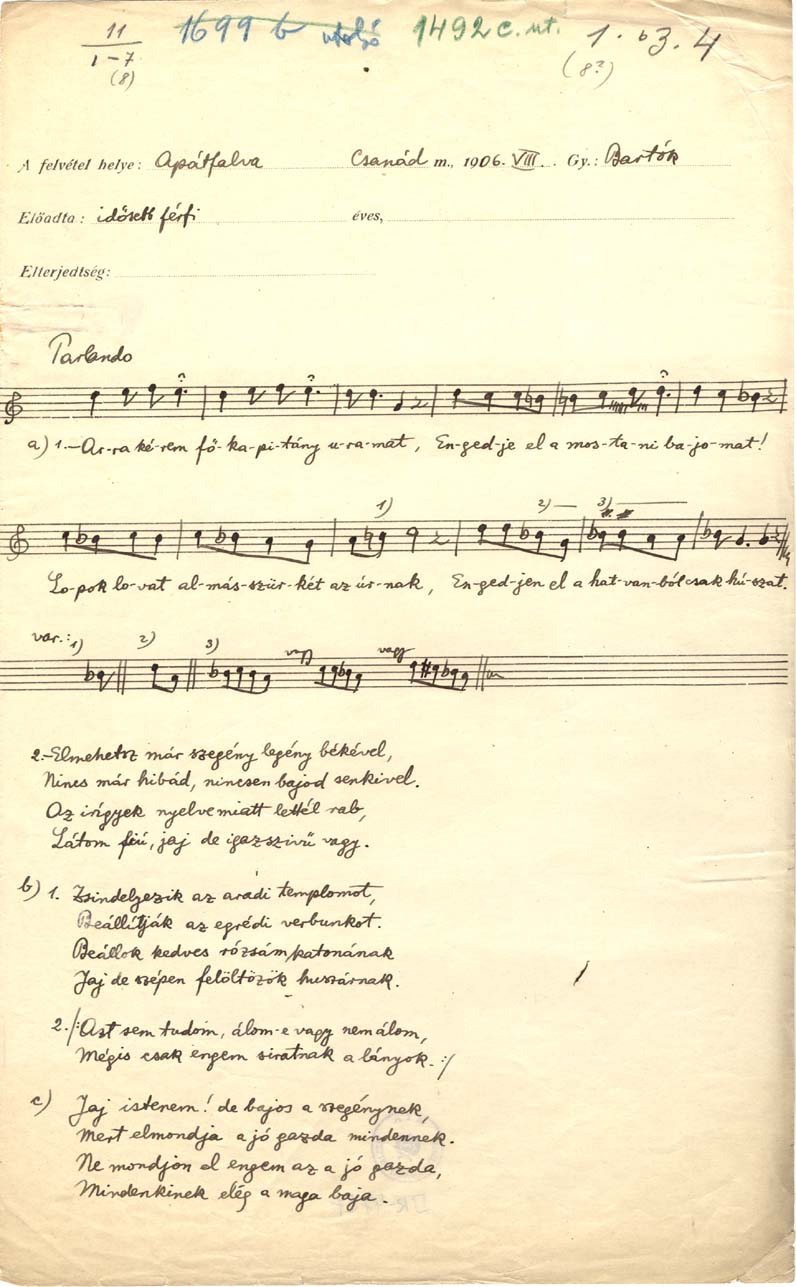 11
1-7
(8)
1699 b utolsó 1492 c. ut. 1. b3. 4
(8?)
A felvétel helye: Apátfalva Csanád m., 1906. VIII. Gy.: Bartók
Előadta: idősebb férfi éves,
Elterjedtség:
Parlando
a) 1.-Ar-ra ké-rem fő-ka-pi-tány u-ra-mat, En-ged-je el a mos-ta-ni ba-jo-mat!
1) 2) 3)
Lo-pok lo-vat al-más-szür-két az úr-nak, En-ged-jen el a hat-van-ból csak hú-szat.
var.: 1) 2) 3) vagy vagy
2.-Elmehetsz már szegény legény békével,
Nincs már hibád, nincsen bajod senkivel.
Az irigyek nyelve miatt lettél rab,
Látom fiú, jaj de igazszivű vagy.
b) 1. Zsindelyezik az aradi templomot,
Beállítják az egrédi verbunkot.
Beállok kedves rózsám katonának
Jaj de szépen felöltözök huszárnak.
2. /: Azt sem tudom, álom-e vagy nem álom,
Mégis csak engem siratnak a lányok. :/
c) Jaj istenem! de bajos a szegénynek,
Mert elmondja a jó gazda mindennek.
Ne mondjon el engem az a jó gazda,
Mindenkinek elég a maga baja.